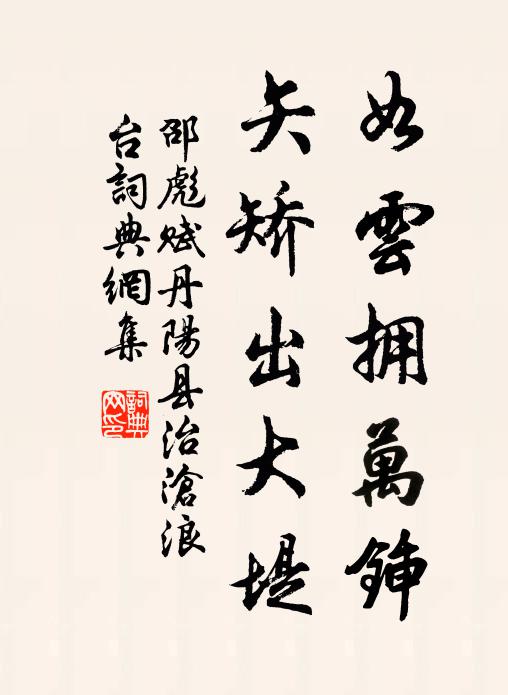 如雲拥萬鍤
矢矯出大堤
邵彪賦丹陽县治滄浪
台詞典網集
詞典
网印